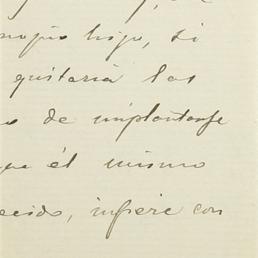 propio hijo, si
quitaria las
de implantarse
que él mismo
ecido, infiere con